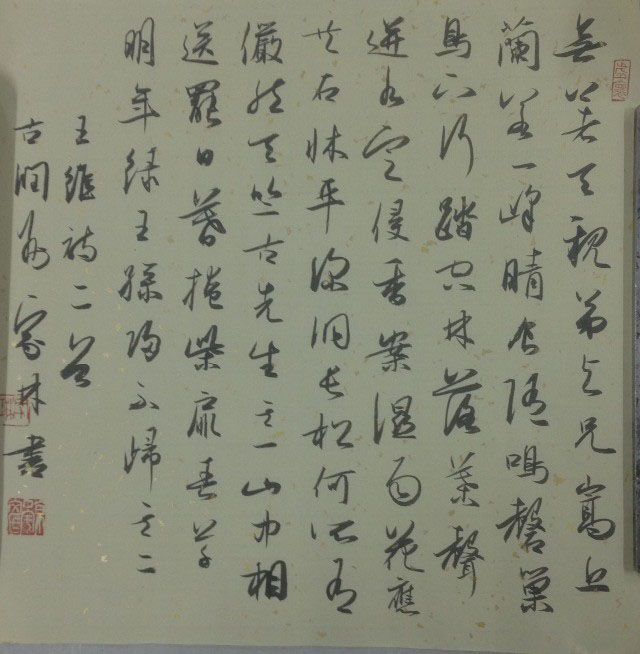 無著天親弟与兄嵩丘
蘭若一峰晴食随鳴磬巢
烏下行踏空林落葉聲
迸水定侵香案濕雨花應
共石牀平深洞長松何所有
儼然天竺古先生其一山中相
送罷日暮掩柴扉春草
明年緑王孫歸不歸其二
王維詩二首
古潤州林書